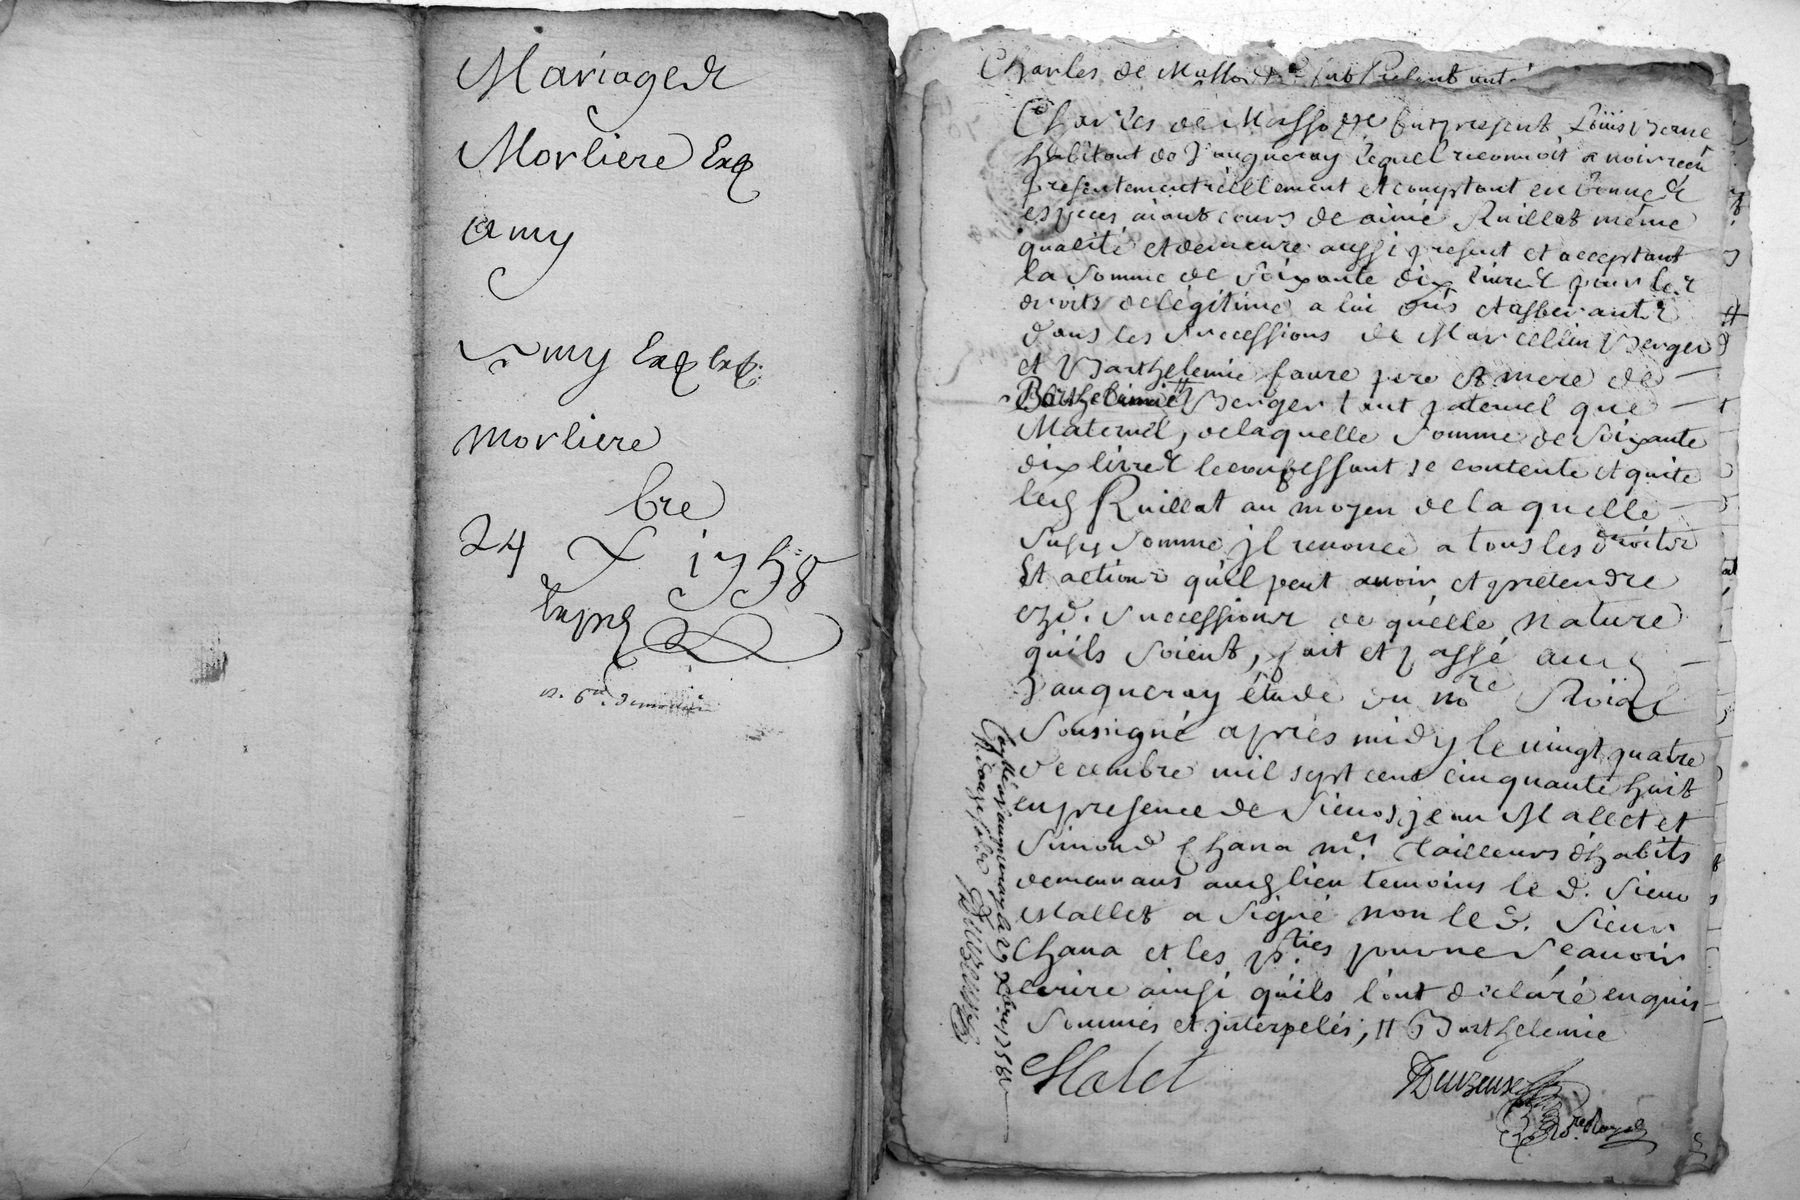 Mariage de
Morliere Exp
amy
amy Exp Exp
Morliere
24 Xbre 1758
Charles de Masso
Charles de Masso fut present Louis
habitant de Vaugneray lequel reconnoit avoir receu
presentement réellement et comptant en bonnes
espèces aiant cours de aimé Ruillat même
qualité et demeure aussi present et acceptant
la somme de soixante dix livres pour les
droits de légitime a lui
dans les successions de Marcellin Berger
et Barthelemie faure pere et mere de
Barthelemie # Berger tant paternel que
Maternel, de laquelle somme de soixante
dix livres le confessant se contente et quite
led Ruillat au moyen de laquelle
susd somme jl renonce a tous les droits
et actions quil peut avoir et pretendre
ezd. successions de quelle nature
quils soient, fait et passé aud
Vaugneray étude du nore Roïal
soussigné après midy le vingt quatre
decembre mil sept cent cinquante huit
en presence de sieurs jean Mallet et
Simond Chana mes. tailleurs d'habits
demeurans aud lieu temoins le d. sieur
Mallet a signé non le d. sieur
Chana et les pties pour ne sçavoir
écrire ainsi quils l'ont déclaré enquis
sommés et jnterpelés, # Barthelemie
Malet
nore Royal
Controllé a Vaugneray le 29 Xbre 1758